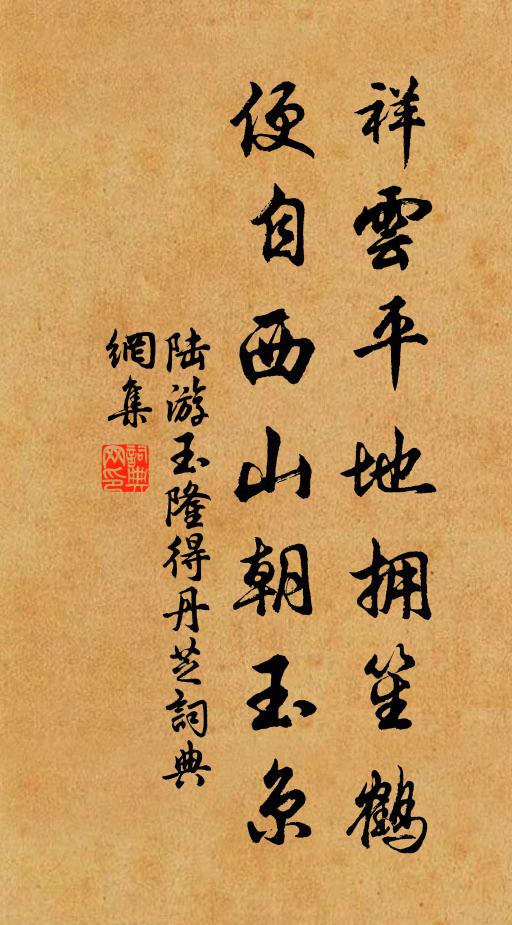 祥雲平地拥笙鶴
便自西山朝玉京
陆游玉隆得丹芝詞典
網集
詞典
网印